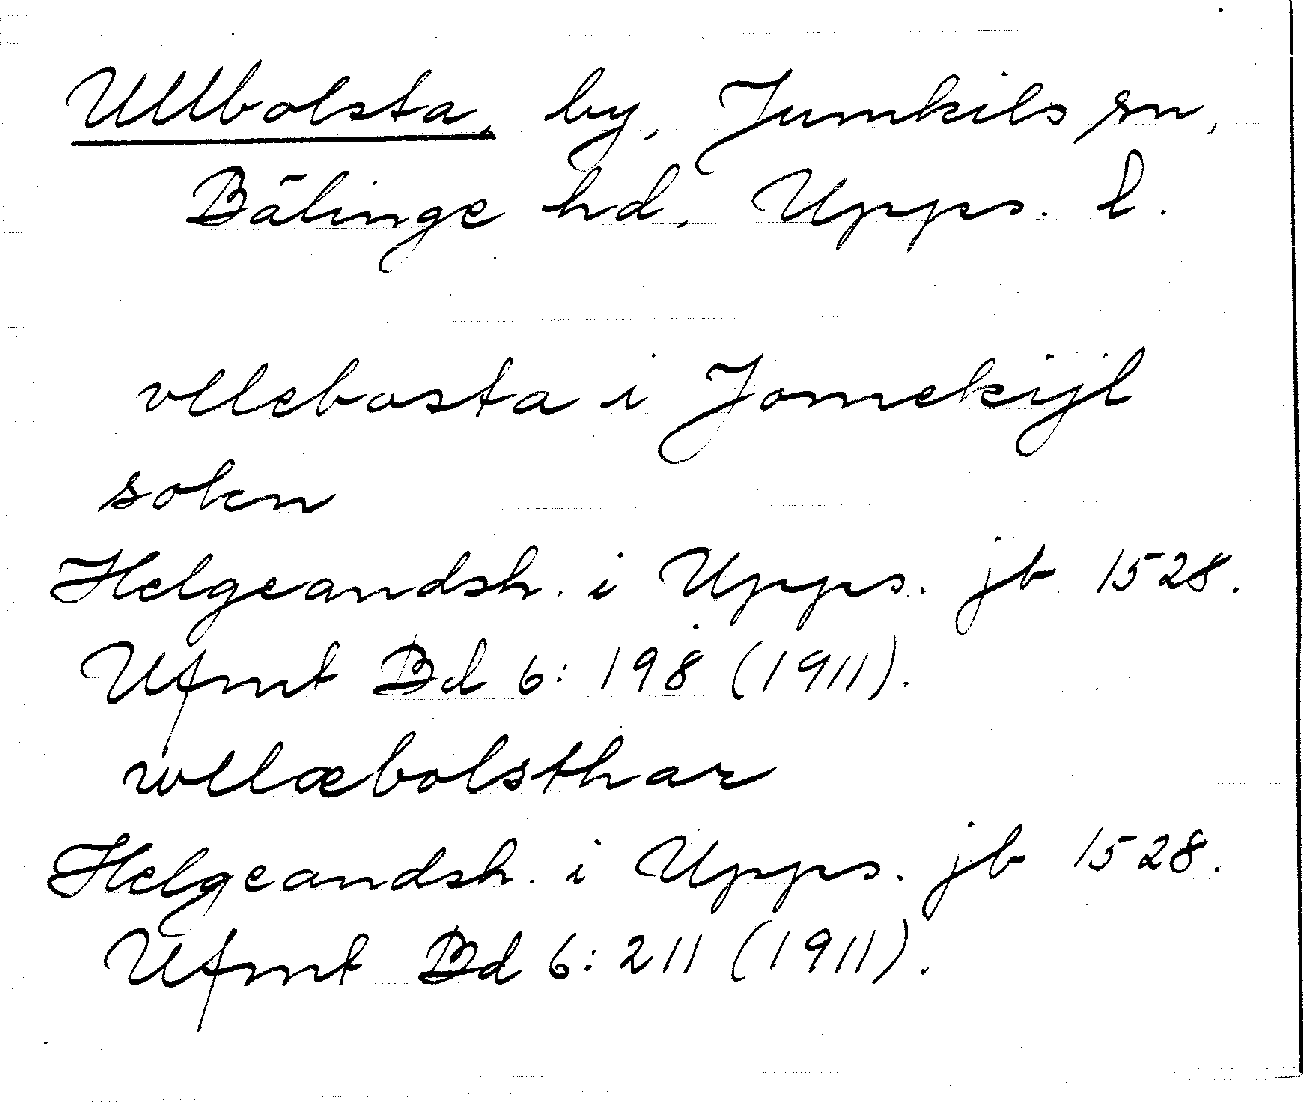 Ullbolsta, by, Jumkils sn,
Bälinge hd, Upps. l.
vllebosta i Jomekijl
sokn
Helgeandsh. i Upps. jb 1528.
Ufmt Bd 6: 198 (1911).
wllæbolsthar
Helgeandsh. i Upps. jb 1528.
Ufmt Bd 6: 211 (1911).